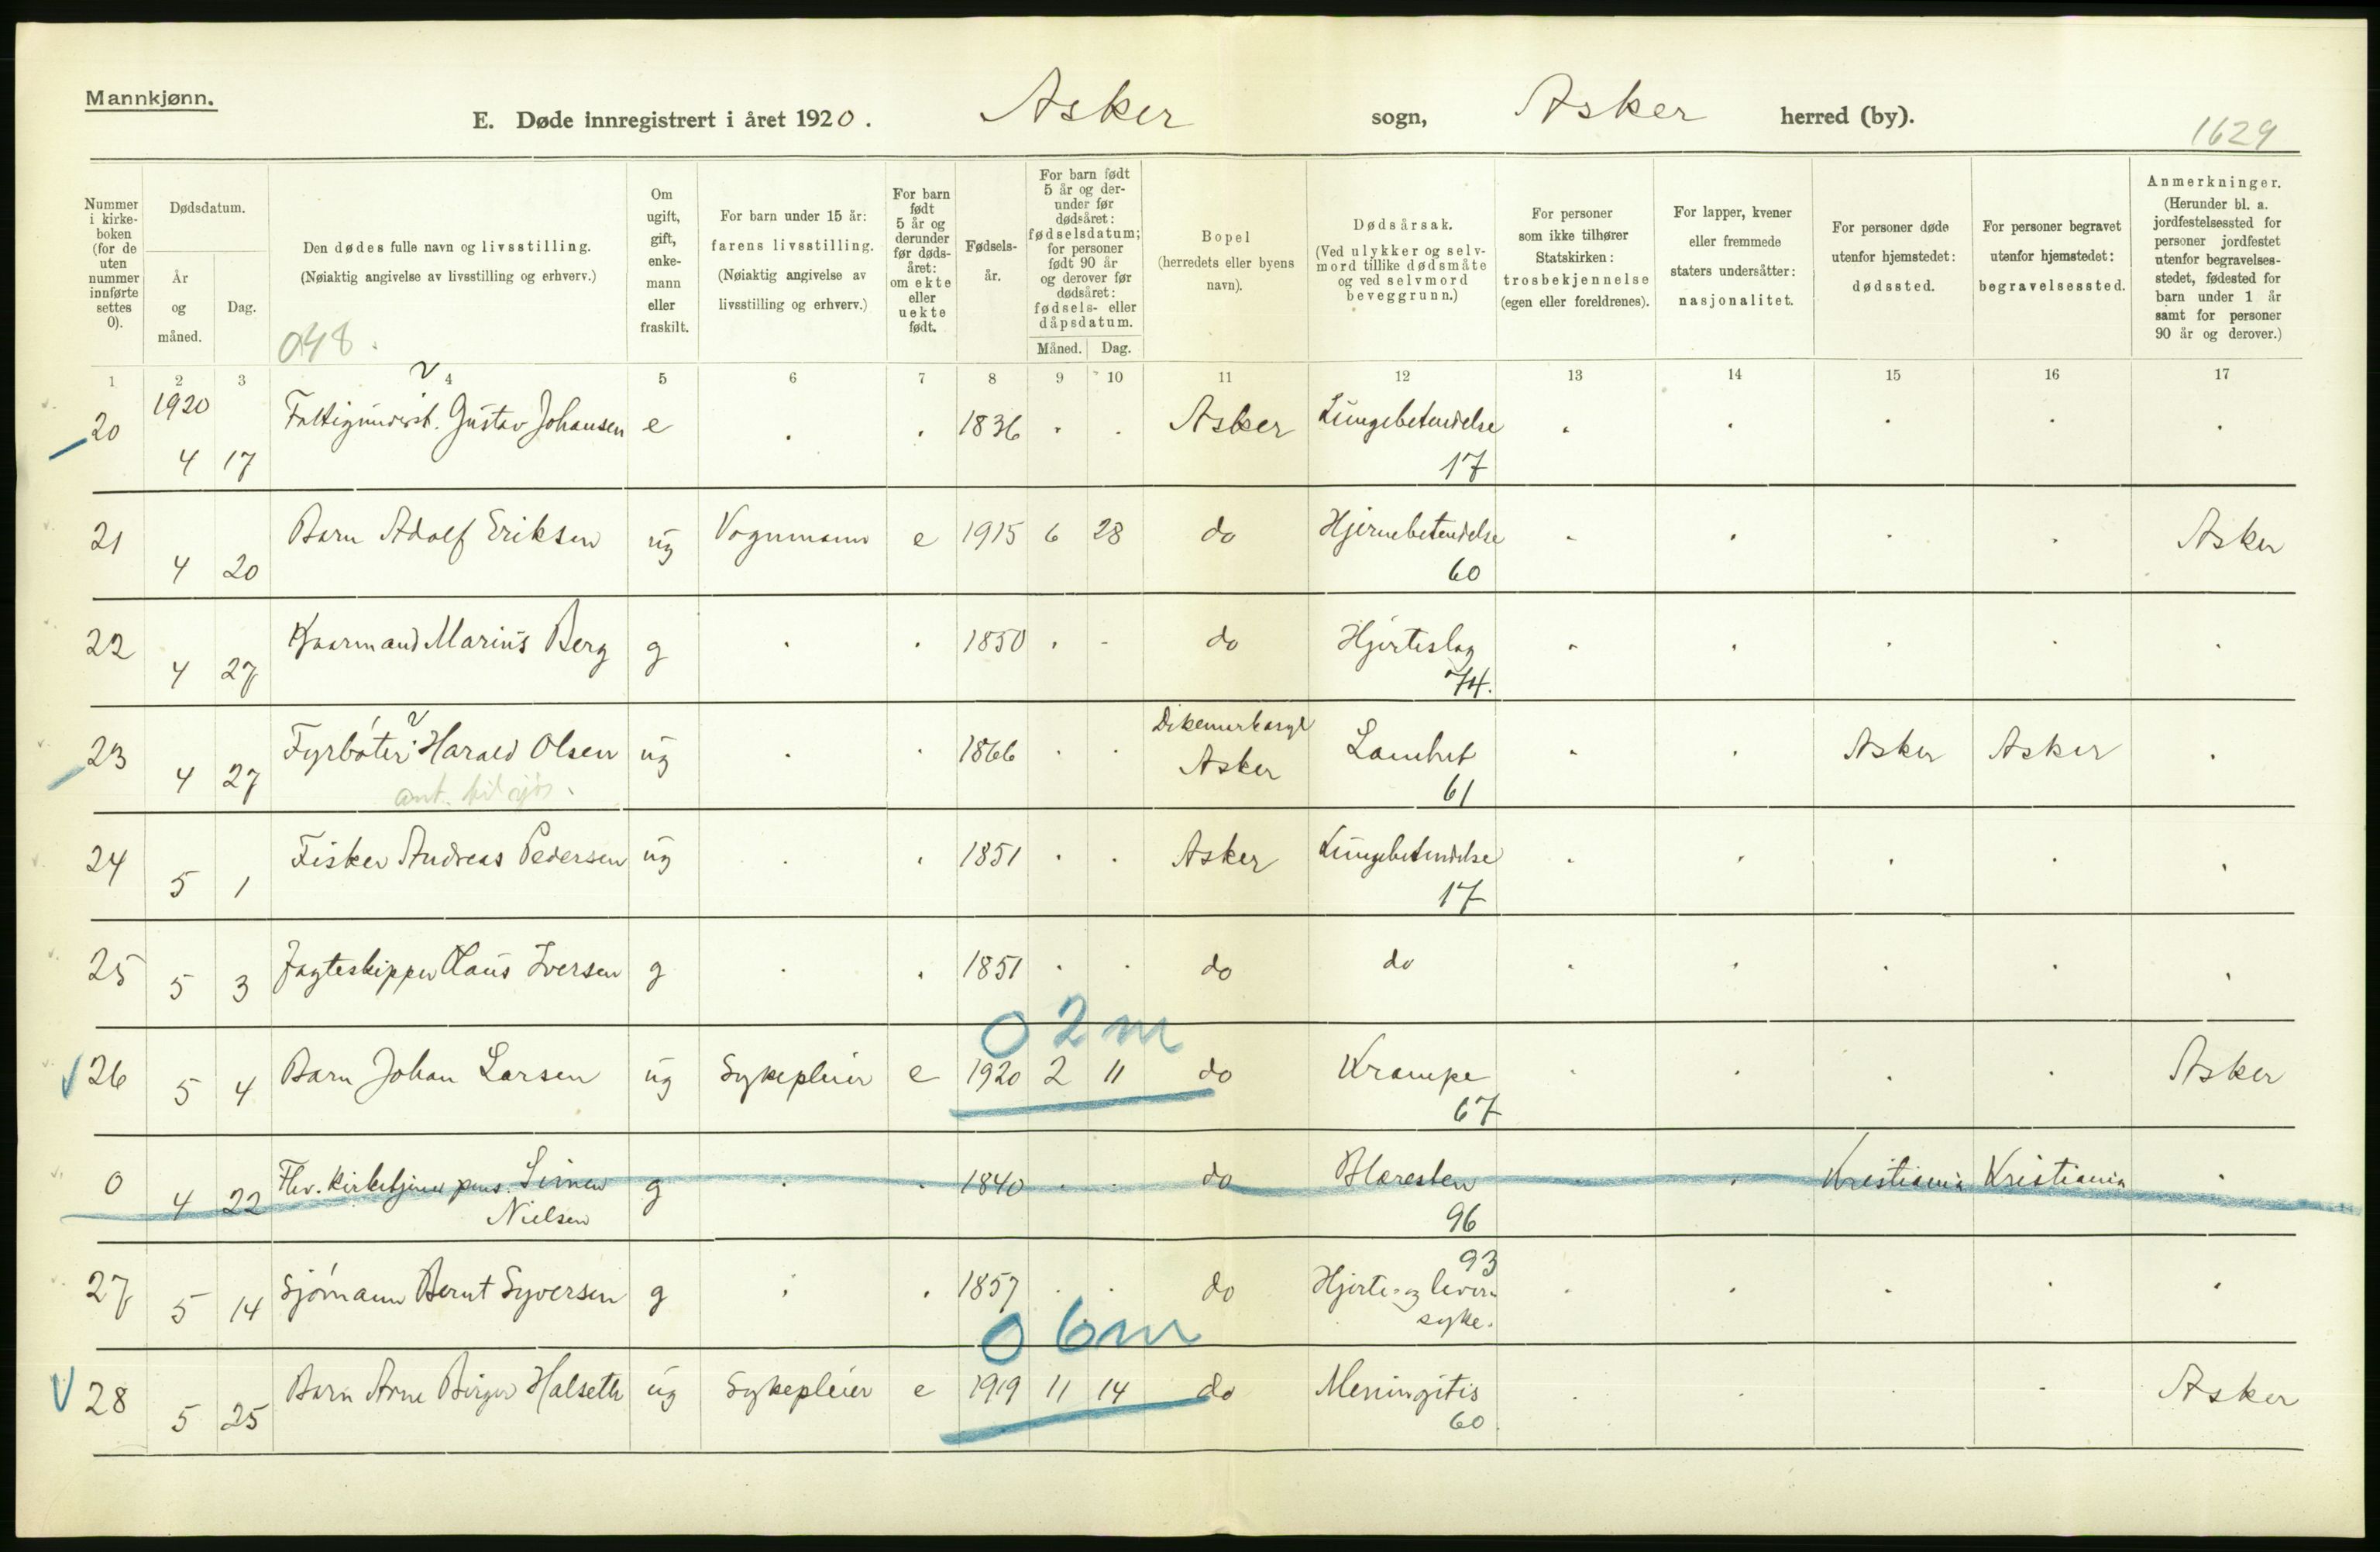 Mannkjønn.
E. Døde innregistrert i året 1920. Asker sogn, Asker herred (by).
1629
Nummer i kirke-boken (for de uten nummer innførte settes 0).
Dødsdatum.
År og måned.
Dag.
Den dødes fulle navn og livsstilling.
(Nøiaktig angivelse av livsstilling og erhverv.)
048.
Om ugift, gift, enke-mann eller fraskilt.
For barn under 15 år: farens livsstilling.
(Nøiaktig angivelse av livsstilling og erhverv.)
For barn født 5 år og derunder før døds-året: om ekte eller uekte født.
Fødsels-år.
For barn født 5 år og der-under før dødsåret: fødselsdatum; for personer født 90 år og derover før dødsåret: fødsels- eller dåpsdatum.
Måned. Dag.
Bopel
(herredets eller byens navn).
Dødsårsak.
(Ved ulykker og selv-mord tillike dødsmåte og ved selvmord beveggrunn.)
For personer som ikke tilhører Statskirken: trosbekjennelse (egen eller foreldrenes).
For lapper, kvener eller fremmede staters undersåtter: nasjonalitet.
For personer døde utenfor hjemstedet: dødssted.
For personer begravet utenfor hjemstedet: begravelsessted.
Anmerkninger.
(Herunder bl. a. jordfestelsessted for personer jordfestet utenfor begravelses-stedet, fødested for barn under 1 år samt for personer 90 år og derover.)
1 2 3 4 5 6 7 8 9 10 11 12 13 14 15 16 17
20 1920 4 17 Fattigunderst. Gustav Johansen e . . 1836 . . Asker Lungebetendelse 17 . . . . .
21 4 20 Barn Adolf Eriksen ug Vognmann e 1915 6 28 do Hjernebetendelse 60 . . . . Asker
22 4 27 Kjaarmand Marius Berg g . . 1850 . . do Hjerteslag 74. . . . . .
23 4 27 Fyrbøter Harald Olsen ug . . 1866 . . Asker Lamhet 61 . . Asker Asker .
24 5 1 Fisker Andreas Pedersen ug . . 1851 . . Asker Lungebetendelse 17 . . . . .
25 5 3 Jagteskipper Claus Iversen g . . 1851 . . do do . . . . .
0 2 m
26 5 4 Barn Johan Larsen ug Sykepleier e 1920 2 11 do Krampe 67 . . . . Asker
0 4 22 Fhv. Kirketjener pens. Simen Nielsen g . . 1840 . . do Blæresten 96 . . Kristiania Kristiania .
27 5 14 Sjømann Bernt Syversen g . . 1857 . . do 93 Hjerte- og lever-syke. . . . . .
0 6 m
28 5 25 Barn Arne Birger Halseth ug Sykepleier e 1919 11 14 do Meningitis 60 . . . . Asker